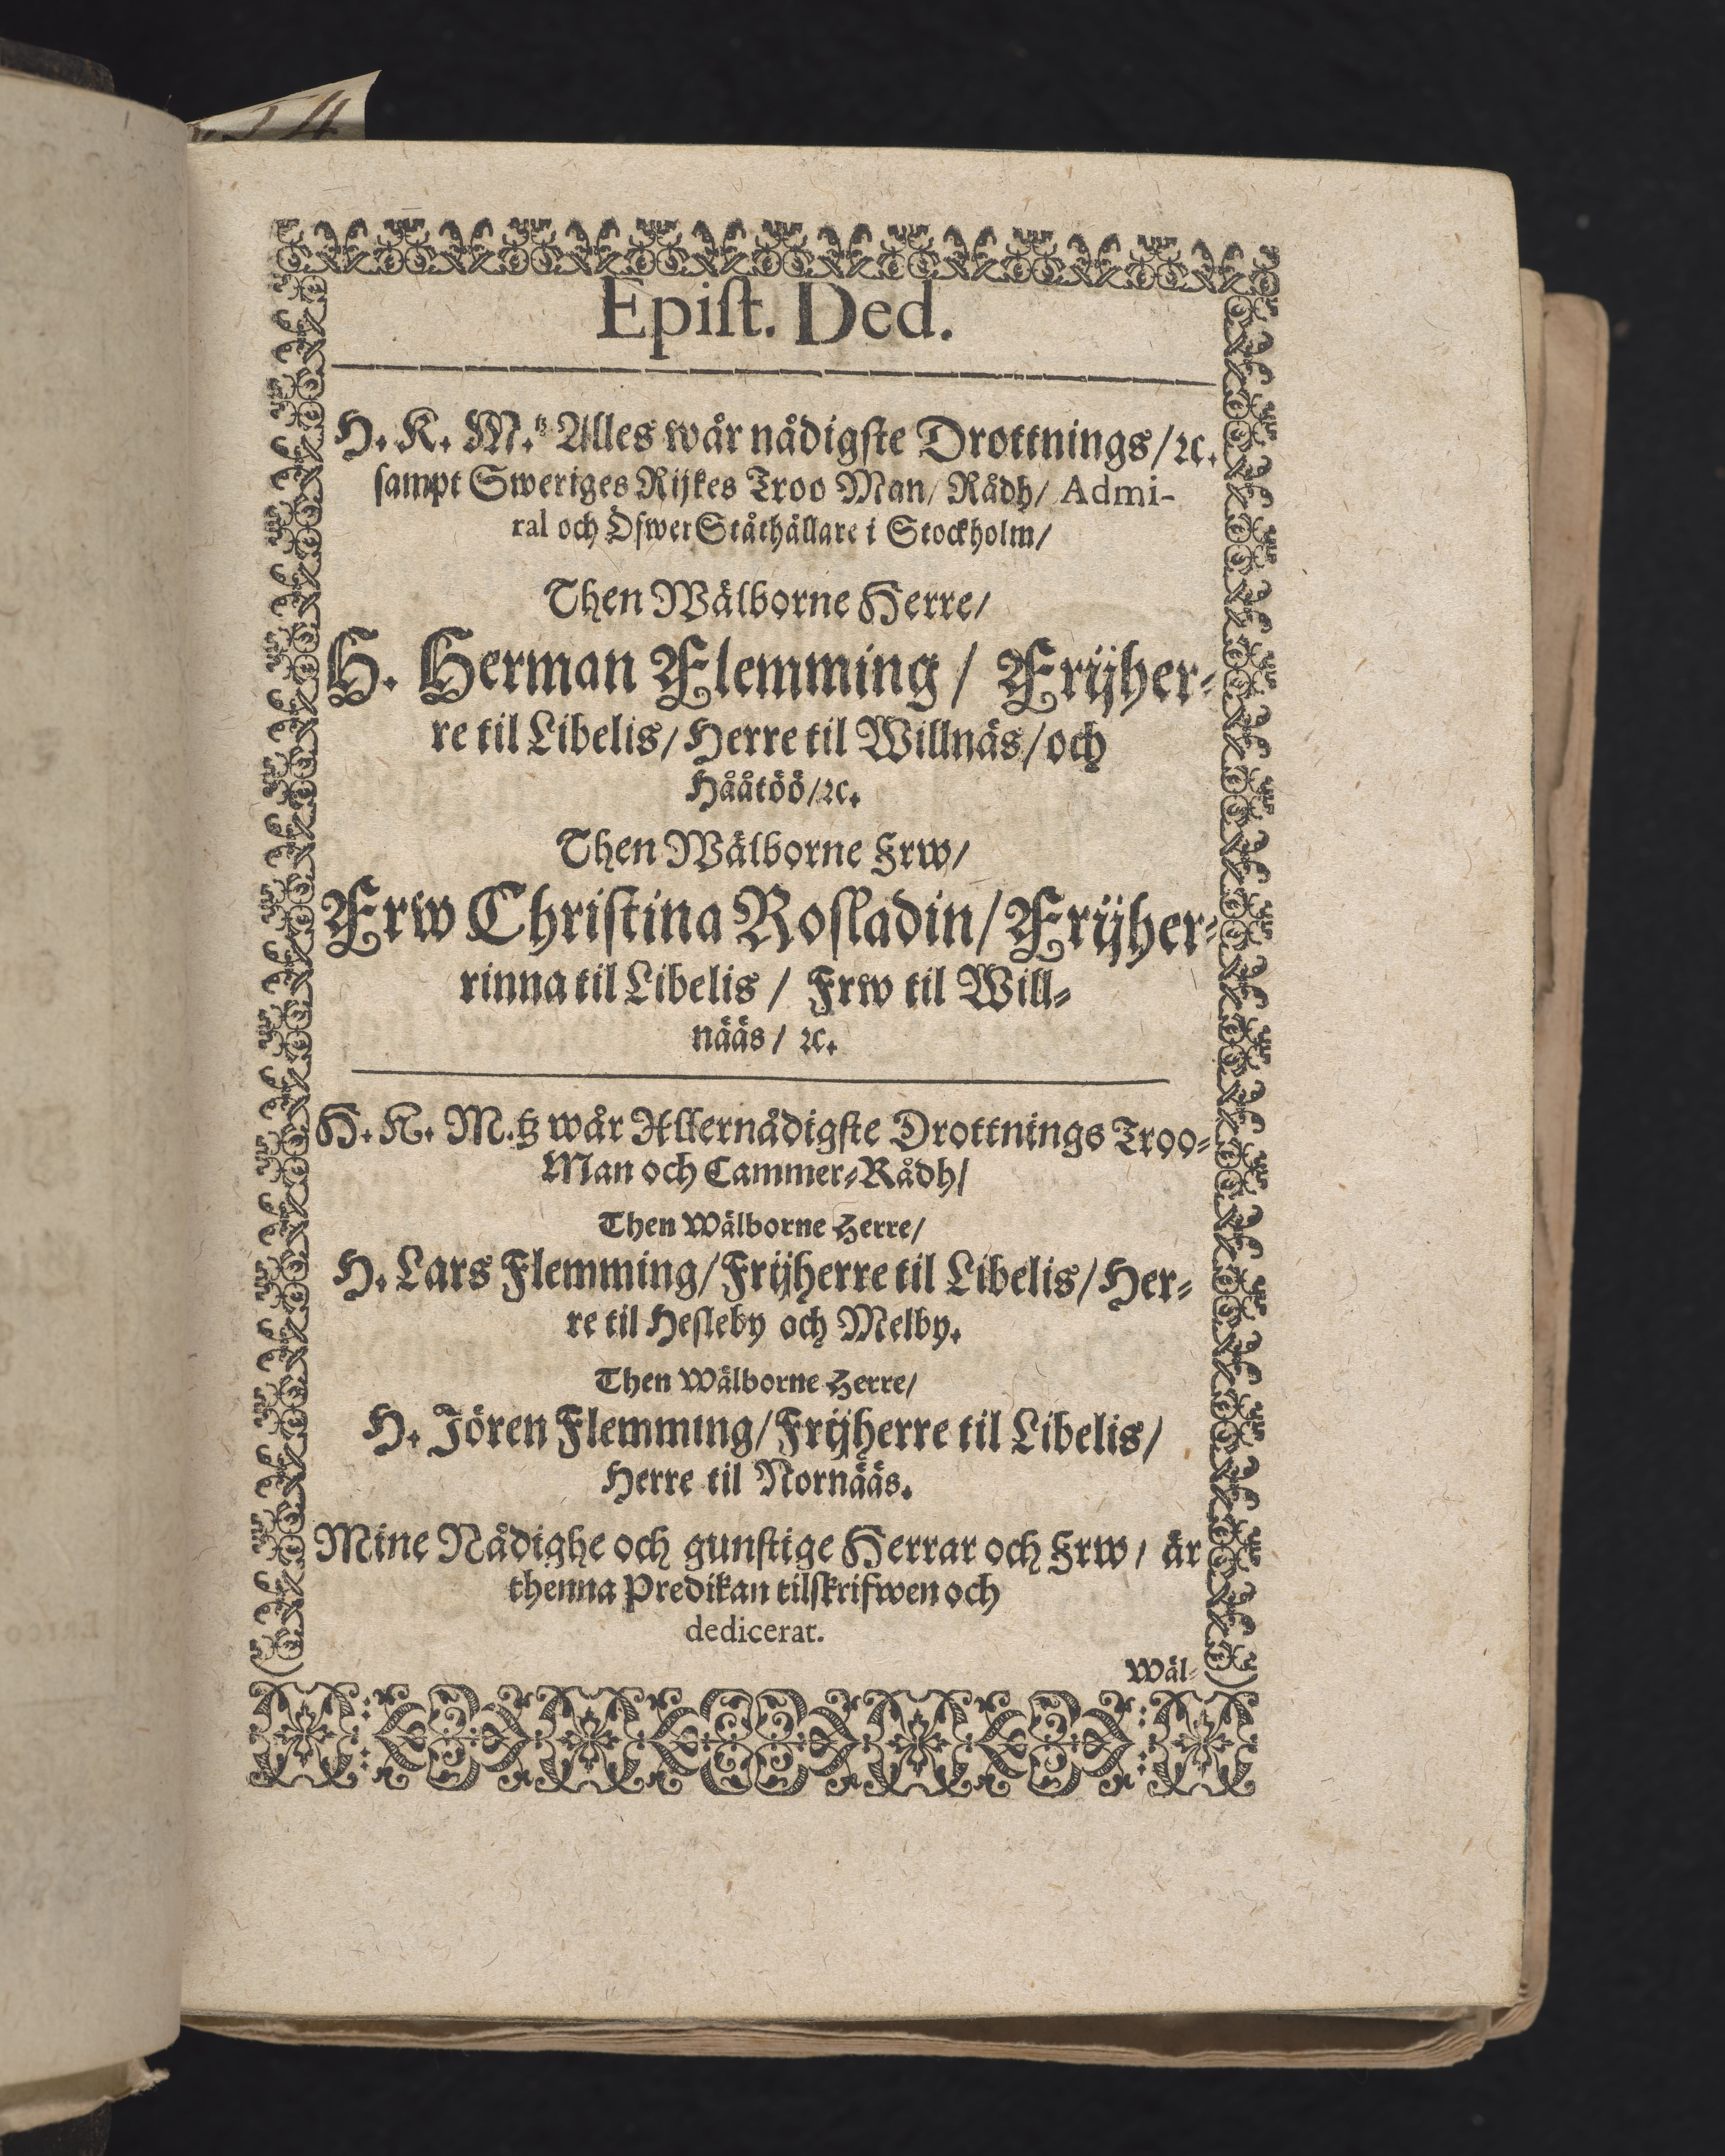 Epiſt. Ded.
H. K. M.tz Alles wår nådigſte Drottnings/ ꝛc.
ſampt Sweriges Rijkes Troo Man/ Rådh/ Admi-
ral och Öfwer Ståthållare i Stockholm/
Then Wälborne Herre/
H. Herman Flemming / Frijher-
re til Libelis/ Herre til Willnäs/ och
Hååtöö/ ꝛc.
Then Wälborne Frw/
Frw Chriſtina Roſladin/ Frijher-
rinna til Libelis / Frw til Will-
nääs / ꝛc.
H. K. M.tz wår Allernådigſte Drottnings Troo-
Man och Cammer-Rådh/
Then Wälborne Herre/
H. Lars Flemming/ Frijherre til Libelis/ Her-
re til Heſleby och Melby.
Then Wälborne Herre/
H. Jören Flemming/ Frijherre til Libelis/
Herre til Nornääs.
Mine Nådighe och gunſtige Herrar och Frw / är
thenna Predikan tilſkrifwen och
dedicerat.
Wäl-